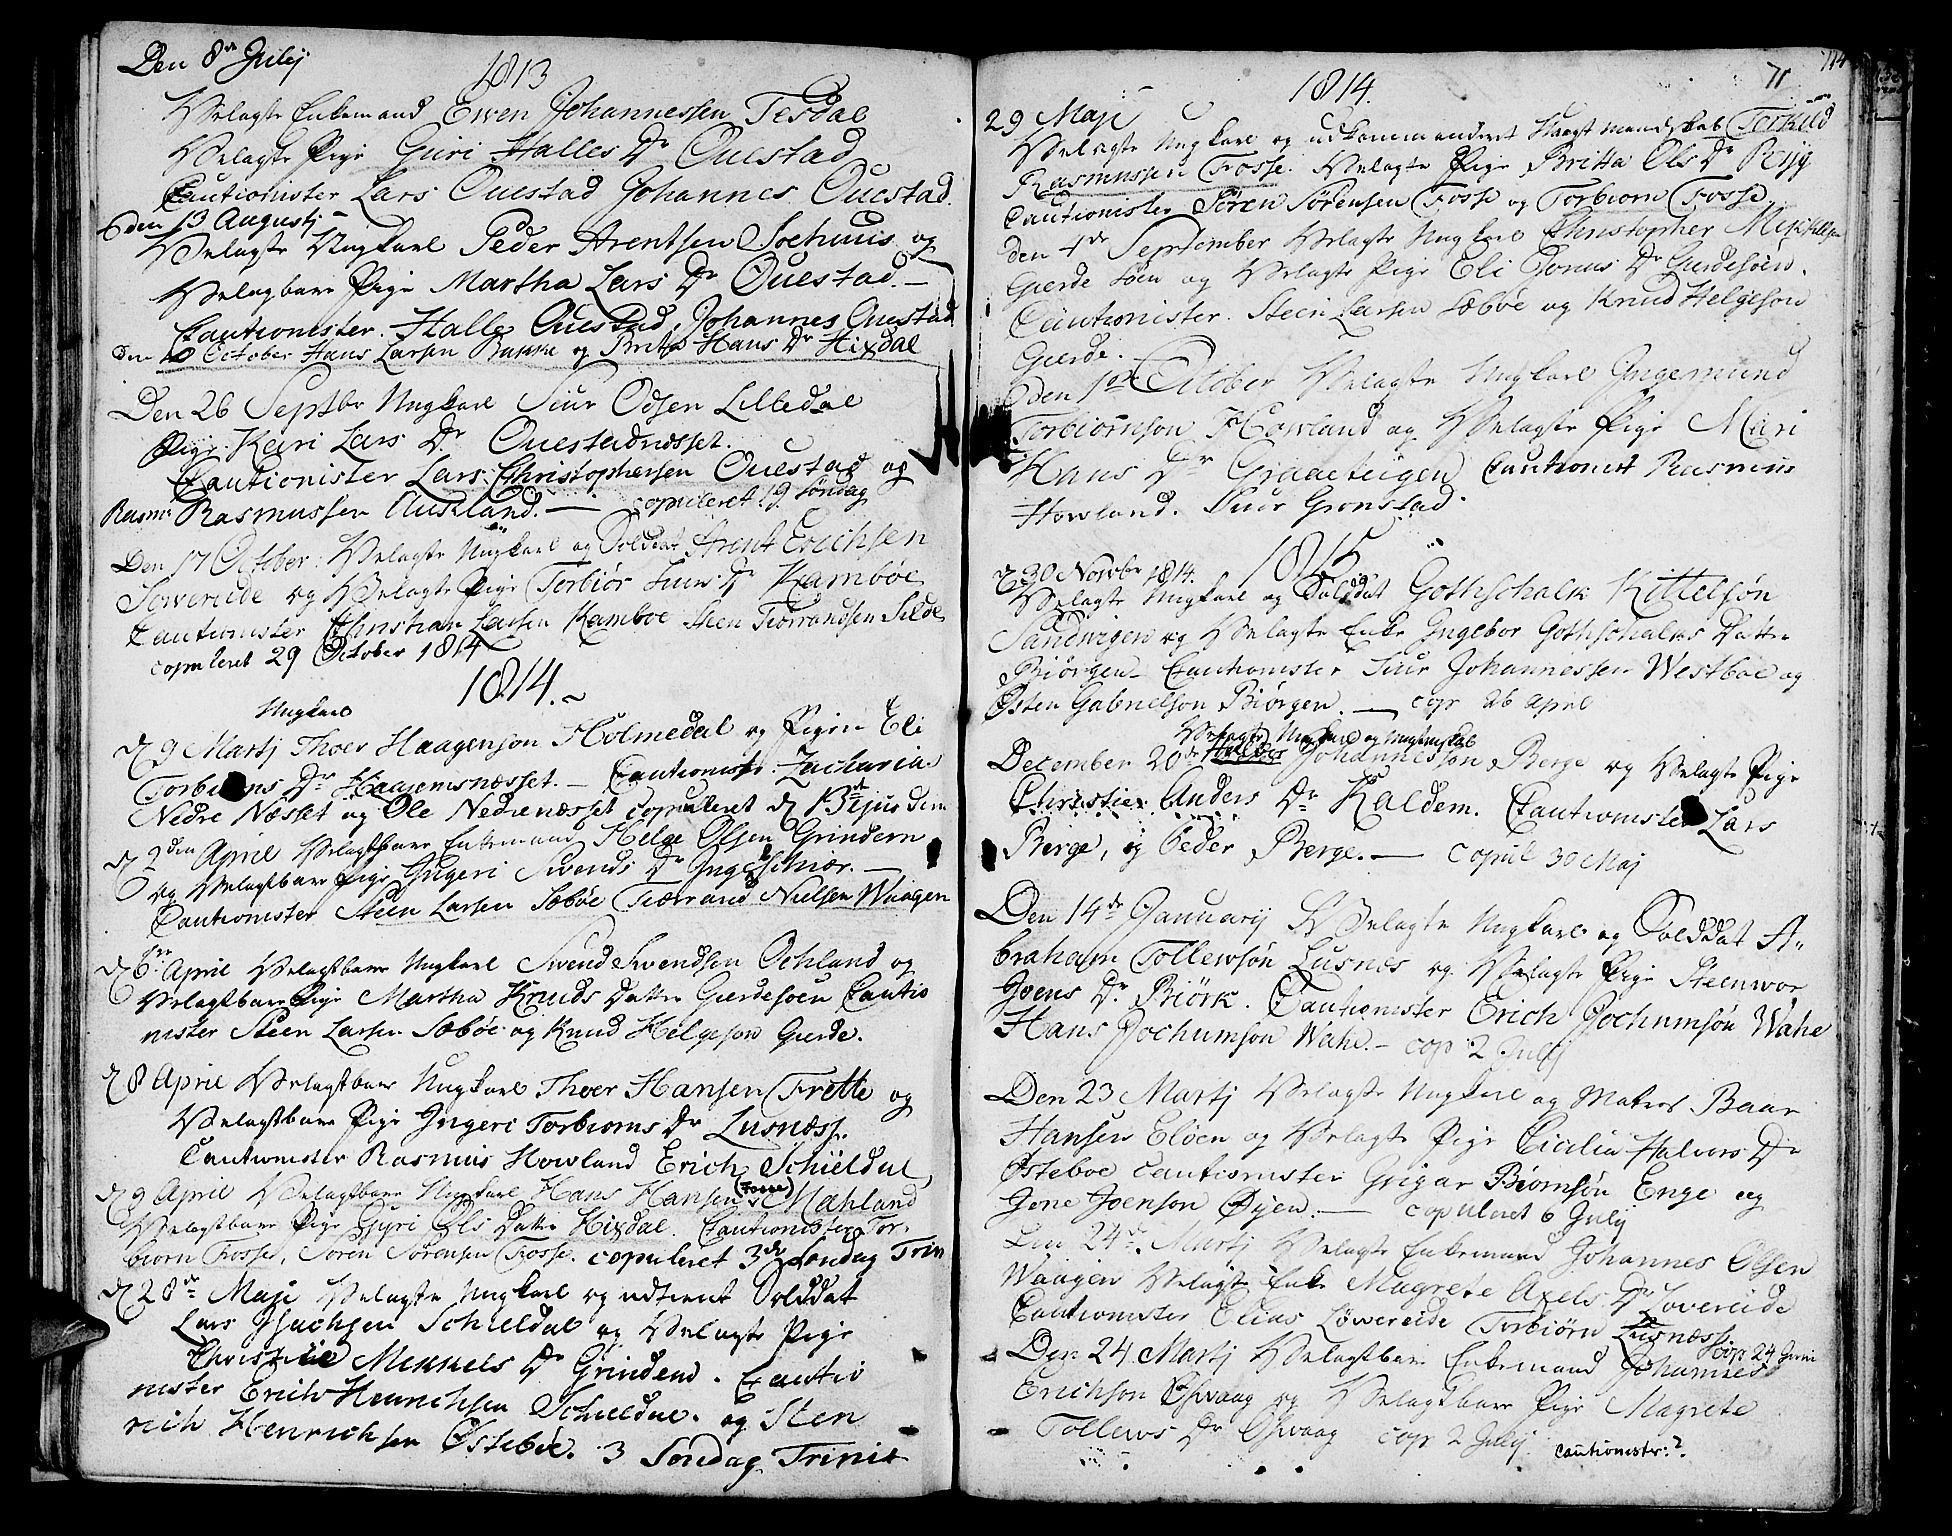 Den 8de Julij
1813
Velagte Enkemand Ewen Johannessen Tesdal
Velagte Pige Guri Halles Dr Ouestad
Cautionister Lars Ouestad Johannes Ouestad.
den 13 Augustj
Velagte Ungkarl Peder Arentsen Sochuus og
Velagbare Pige Martha Lars Dr Ouestad.
Cautionister. Halle Ouestad, Johannes Ouestad
den October Hans Larsen Bakke og Brita Hans Dr Hixdal
Den 26 Septbr Ungkarl Siur Odsen Lilledal
Pige Kari Lars Dr Ouestadnæsset.
Cautionister Lars Christophersen Ouestad og
Rasm: Rasmussen Auskland. — copuleret 19 Søndag
Den 17 October: Velagte Ungkarl og Soldat Arent Erichsen
Løwereide og Velagte Pige Torbiør Dr Kambøe
Cautionister Christian Larsen Kamboe Steen Tiørrandsen Silde
copuleret 29 October 1814
1814.
Ungkarl
D 9 Martj Thoer Haagenson Holmedal og Pigen Eli
Torbiørns Dr Haagensnæsset. — Cautionistr. Zacharias
Nedre Næsset og Ole Nedrenæsset copuleret d
D 2den April Velagtbare Enkemand Helge Olsen Grindem
og Velagtbare Pige Ingeri Swends Dr —
Cautionister Steen Larsen Sæbøe Tiærand Nielsen Waagen
D 6te April Velagtbare Ungkarl Swend Swendsen Ochland og
Velagtbare Pige Martha Knuds Datter Gierdesøen Cautio
nister Steen Larsen Sæbøe og Knud Helgeson Gierde.
D 8 April Velagtbare Ungkarl Thoer Hansen Frette og
Velagtbare Pige Ingeri Torbiorns Dr Lusnæss.
Cautionister Rasmus Howland Erich Schieldal
D 9 April Velagtbare Ungkarl Hans Hansen (Fosse) Mæhland
Velagtbare Pige Gyri Ols Datter Hixdal. Cautionister Tor-
biorn Fosse, Søren Sørensen Fosse. copuleret 3de Søndag Trin
D 28de Maji Velagte Ungkarl og udtient Solddat
Lars Isachsen Schieldal og Velagte Pige
Christie Mikkels Dr Grindem. Cautio
nister Erich Henrichsen Schieldal. og Sten
rich Henrichsen Østebøe. 3 Søndag Trinit
71 114
1814.
29 Maji
Velagte Ungkarl og udkommanderet Mandskab Torkild
Rasmussen Fosse. Velagte Pige Britta Ols Dr
Cautionister Sören Sørensen Fosse og Torbiorn Fosse
den 4de September Velagte Ungkarl Christopher Mikkelsen
Gierde Søen og Velagte Pige Eli Jonas Dr Gierdesøen.
Cautionister. Steen Larsen Sæbøe og Knud Helgeson
Gierde.
den 1ste October Velagte Ungkarl Ingemund
Torbiørnson Howland og Velagte Pige Mari
Hans Dr Graaeteigen Cautionist Rasmus
Howland. Siur Gronstad.
1815
D 30 Nowbr 1814.
Velagte Ungkarl og Solddat Gothschalk Kittelsøn
Sandwigen og Velagte Enke Ingebor Gothschalks Datter
Biørgen Cautionister Siur Johannessen Westboe og
Østen Gabrielson Biörgen. — cop 26 April
Velagte Ungkarl og
December 20de Johannesson Berge og Velagte Pige
Christie Anders Dr Kaldem. Cautionister Lars
Berge, og Peder Berge. — copul 30 Maj
Den 14de Januarij Velagte Ungkarl og Solddat A-
braham Tollewsøn Lusnæs og Velagte Pige Steenwor
Joens Dr Biörk. Cautionister Erich Jochumsøn Wahe
Hans Jochumson Wahe. — cop 2 Julij
Den 23 Martj Velagte Ungkarl og Matros Baar
Hansen Eløen og Velagte Pige Cicilia Halvors Dr
Østeboe Cautionister Grigar Biørnsøn Enge og
Jone Joenson Øyen. — copuleret 6 Julij
Den 24de Martj Velagte Enkemand Johannes Olsen
Waagen Velagte Enke Magrete Axels Dr Lovereide
Cautionister Elias Löwereide Torbiörn Lusnæss
cop 24 Juni
Den 24 Martj Velagtbare Enkemand Johannes
Erichson Øsvaag og Velagtbare Pige Magrete
Tollews Dr Øsvaag cop 2 Julij. Cautionistr:?.